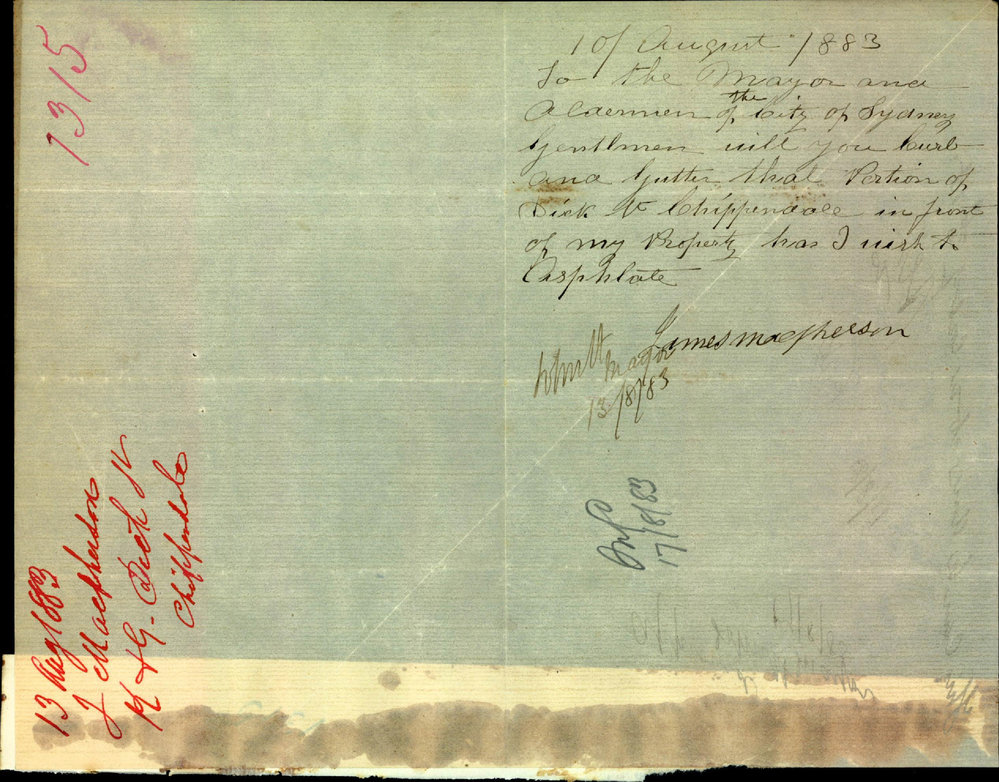 1315
10/ August 1883
To the Mayor and
Aldermen of the City of Sydney
Gentlmen will you Curb
and Gutter that Portion of
Dick St Chippendale in front
of my Property has I wish to
Asphlate
James macpherson
Mayor
13/8/83
17/8/83
13 Aug 1883
J Macpherson
K & G. Dick St
Chippendale